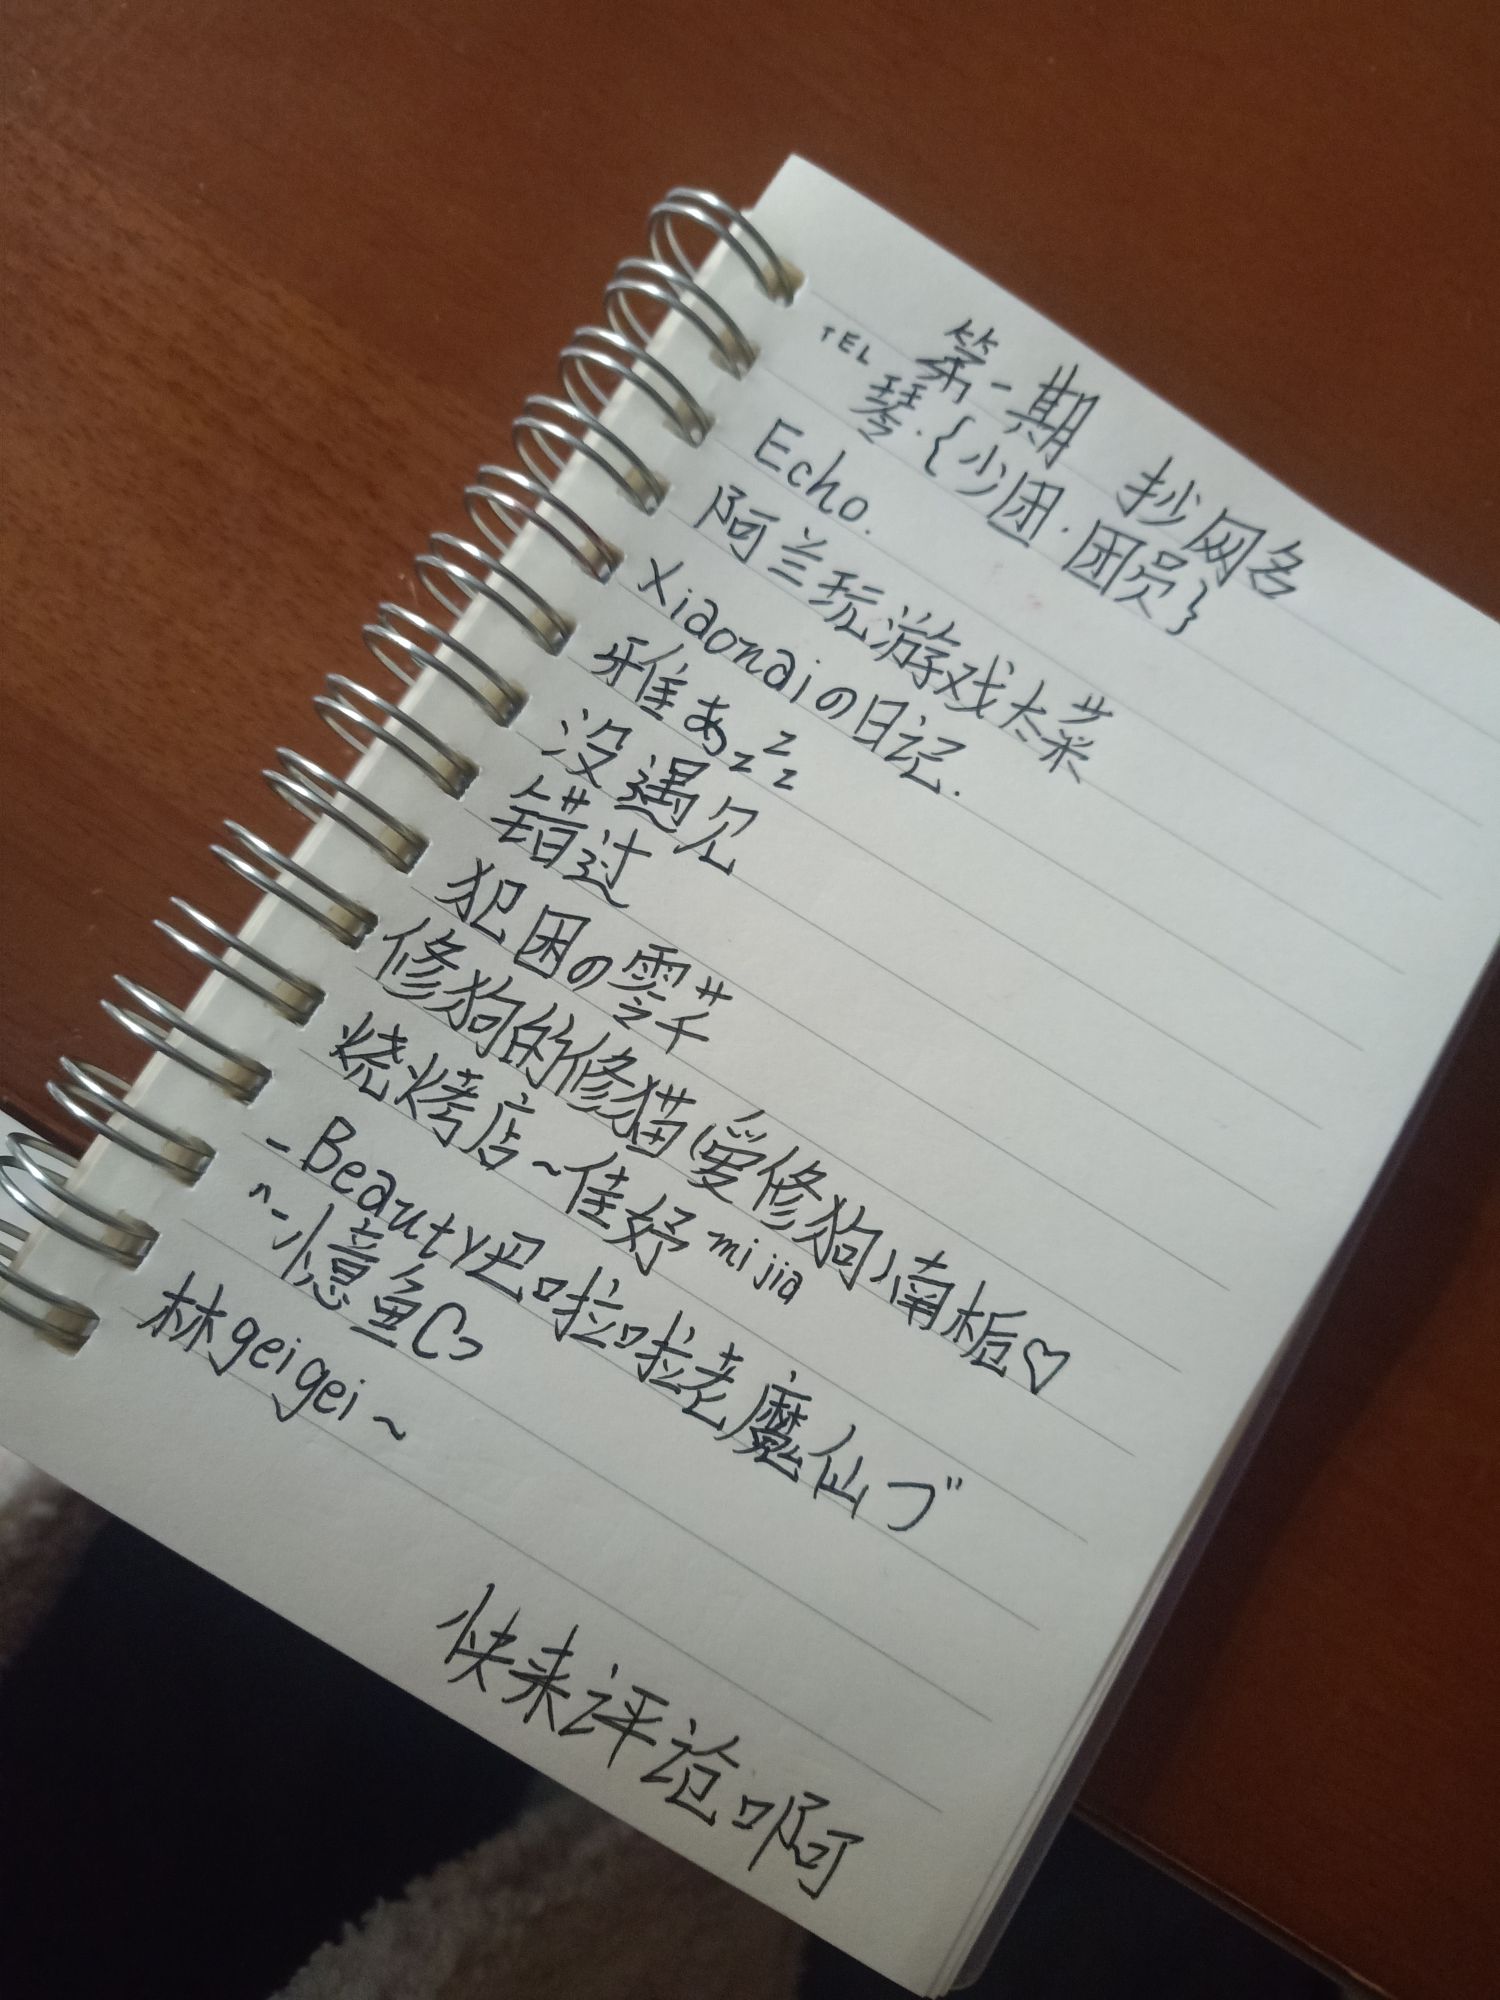 第一期 抄网名
TEL
琴·{少团·团员}
Echo.
阿兰玩游戏太菜
Xiaonaiの日记.
雅あzzz
没遇见
错过
犯困の雫芊
修狗的修猫(爱修狗)南栀♡
烧烤店~佳妤mijia
-Beauty巴啦啦老魔仙づ
^-憶鱼Cっ
林geigei~
快来评论啊